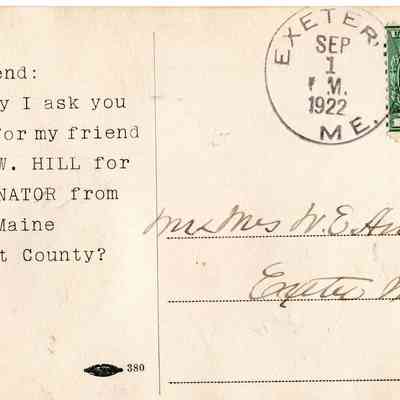 end:
y I ask you
for my friend
W. HILL for
NATOR from
Maine
t County?
380
EXETER,
SEP
1
P.M.
1922
ME.
Mr & Mrs W. E. A
Exeter